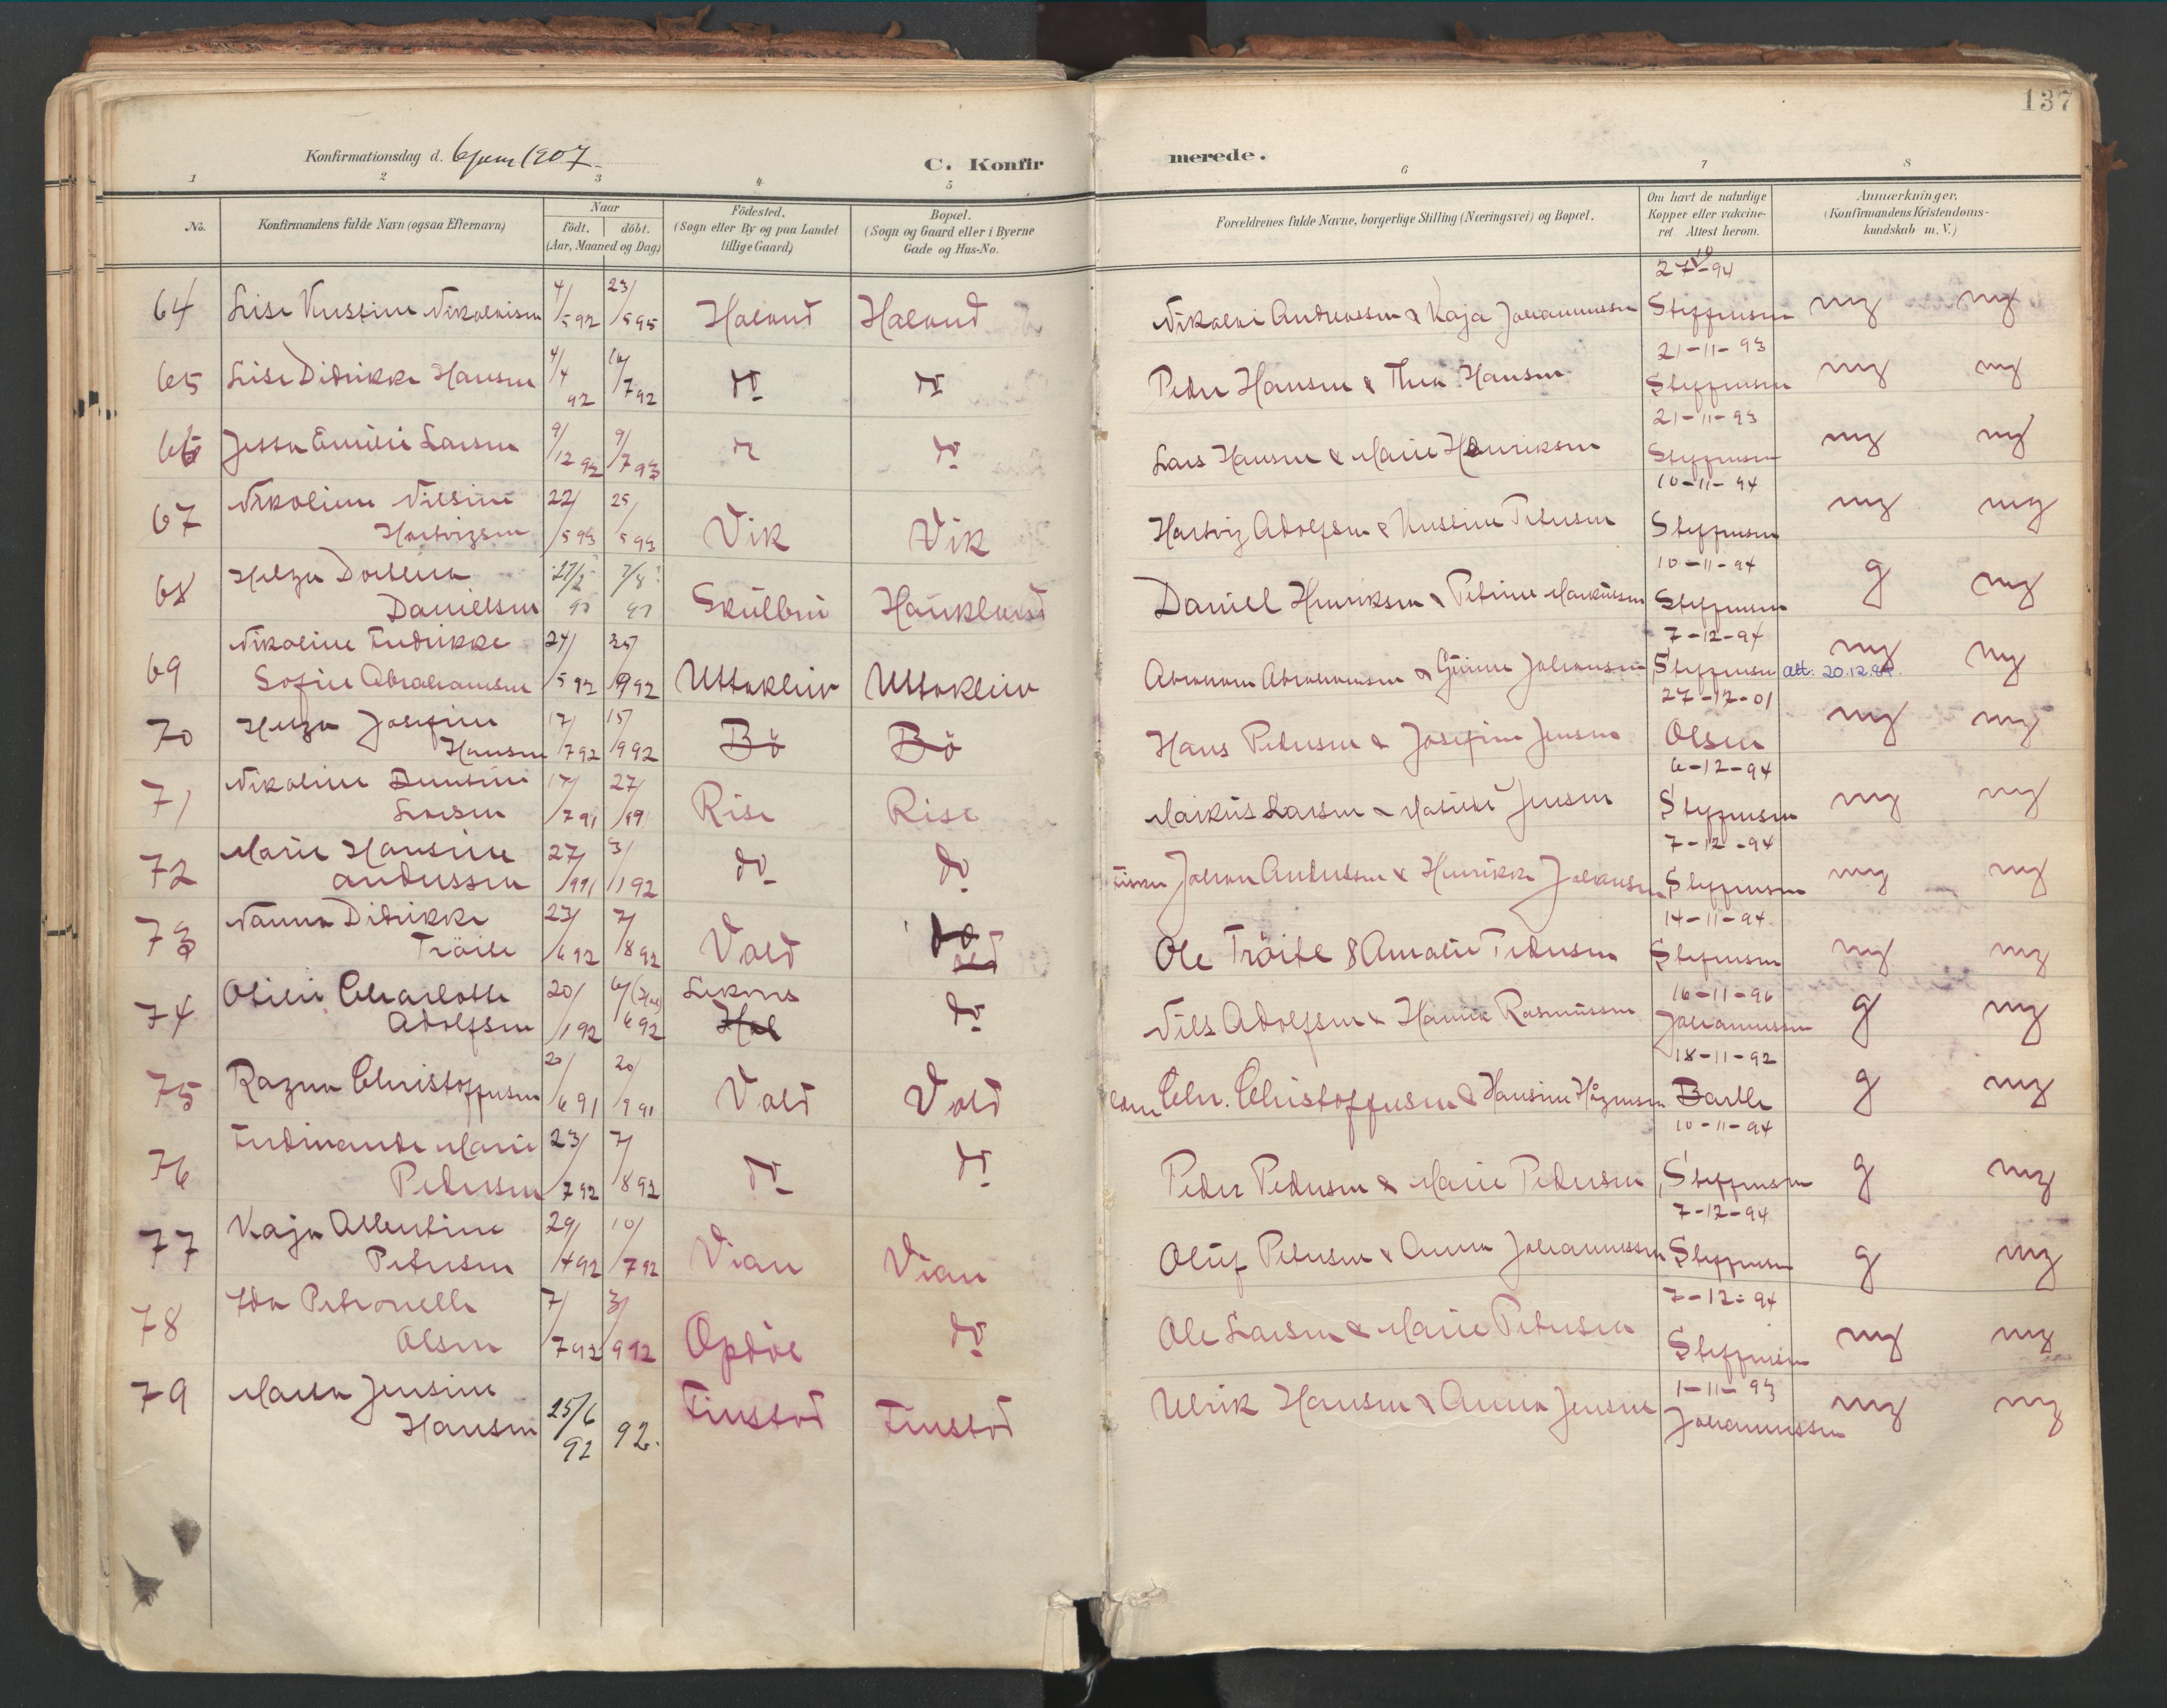 137
Konfirmationsdag d. 6 juni 1907.
C. Konfirmerede.
1 2 3 4 5 6 7 8
No.
Konfirmandens fulde Navn (ogsaa Efternavn)
Naar
födt. döbt.
(Aar, Maaned og Dag)
Födested.
(Sogn eller By og paa Landet
tillige Gaard)
Bopæl.
(Sogn og Gaard eller i Byerne
Gade og Hus-No.
Forældrenes fulde Navne, borgerlige Stilling (Næringsvei) og Bopæl.
Om havt de naturlige
Kopper eller vakcine-
ret Attest herom.
Anmærkninger.
(Konfirmandens Kristendoms-
kundskab m. V.)
64 Lise Kustine Nikolaisen 4/5 92 23/5 95 Haland Haland Nikolai Andreassen & Kaja Johannessen 27-10-94 Steffensen mg mg
65 Lise Didrikke Hansen 4/4 92 16/7 92 do do Peder Hansen & Thea Hansen 21-11-93 Steffensen mg mg
66 Jetta Emilie Larsen 9/12 92 9/7 93 do do Lars Hansen & Marie Henriksen 21-11-93 Steffensen mg mg
67 Nikoline Nilsine
Hartvigsen 22/5 93 25/5 93 Vik Vik Hartvig Adolfsen & Kustine Petersen 10-11-94 Steffensen mg mg
68 Helga Dorthea
Danielsen 27/2 7/8 Skulbru Haukland Daniel Henriksen & Petrine Markussen 10-11-94 Steffensen g mg
69 Nikoline Fredrikke
Sofie Abrahamsen 24/5 92 25/9 92 Uttakleiv Uttakleiv Abraham Abrahamsen & Johansen 7-12-94 Steffensen mg mg
att. 20.12.84.
70 Helga Josefine
Hansen 17/7 92 15/9 92 Bö Bö Hans Pedersen & Josefine Jensen 27-12-01 Olsen mg mg
71 Nikoline
Larsen 17/7 91 27/9 91 Rise Rise Markus Larsen & Matilde Jensen 6-12-94 Steffensen mg mg
72 Marie Hansine
Anderssen 27/11 91 3/1 92 do do Johan Anderssen & Henrikke Johansen 7-12-94 Steffensen mg mg
73 Nanna Didrikke
Tröite 23/6 92 7/8 92 Vold do Ole Tröite & Amalie Pedersen 14-11-94 Stefensen mg mg
74 Otilie Charlotte
Adolfsen 20/1 92 6/6 92 (Hol) Leknes Hol do Nils Adolfsen & Hanna Rasmussen 16-11-96 Johannessen g mg
75 Ragna Christoffersen 20/6 91 20/9 91 Vold Vold Chr. Christoffersen & Hansine Hågensen 18-11-92 Barth g mg
76 Ferdinande Marie
Pedersen 23/7 92 7/8 92 do do Peder Pedersen & Marie Pedersen 10-11-94 Steffensen g mg
77 Kaja Albertine
Petersen 29/4 92 10/7 92 Vian Vian Oluf Petersen & Anna Johannessen 7-12-94 Steffensen g mg
78 Ida Petronelle
Olsen 7/7 92 3/9 92 Opdöl do Ole Larsen & Marie Petersen 7-12-94 Steffensen mg mg
79 Marta Jensine
Hansen 25/6 92 92. Finstad Finstad Ulrik Hansen & Anna Jensen 1-11-93 Johannessen mg mg